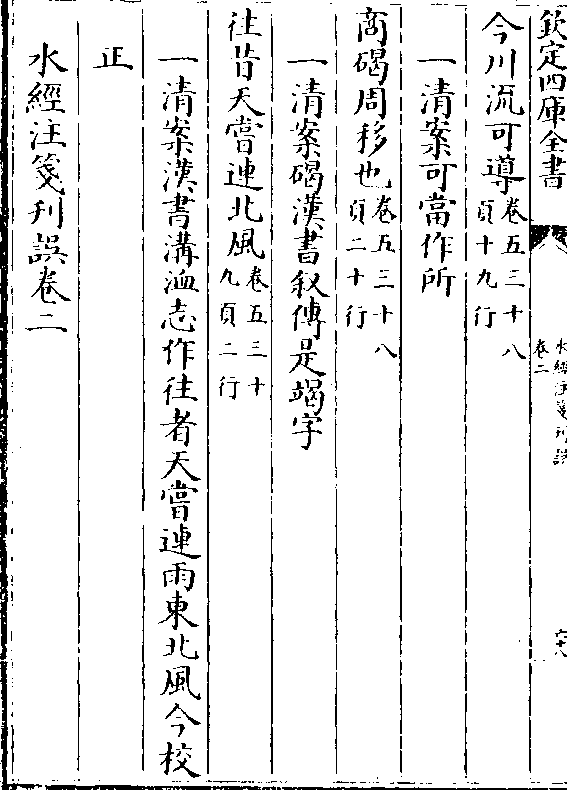 欽定四庫全書
水經注箋刊誤
卷二
今川流可導卷五三十八
頁十九行
一清案可當作所
商碣周移也卷五三十八
頁二十行
一清案碣漢書叙傳是竭字
往昔天嘗連北風卷五三十
九頁二行
一清案漢書溝洫志作往者天嘗連雨東北風今校
正
水經注箋刊誤卷二